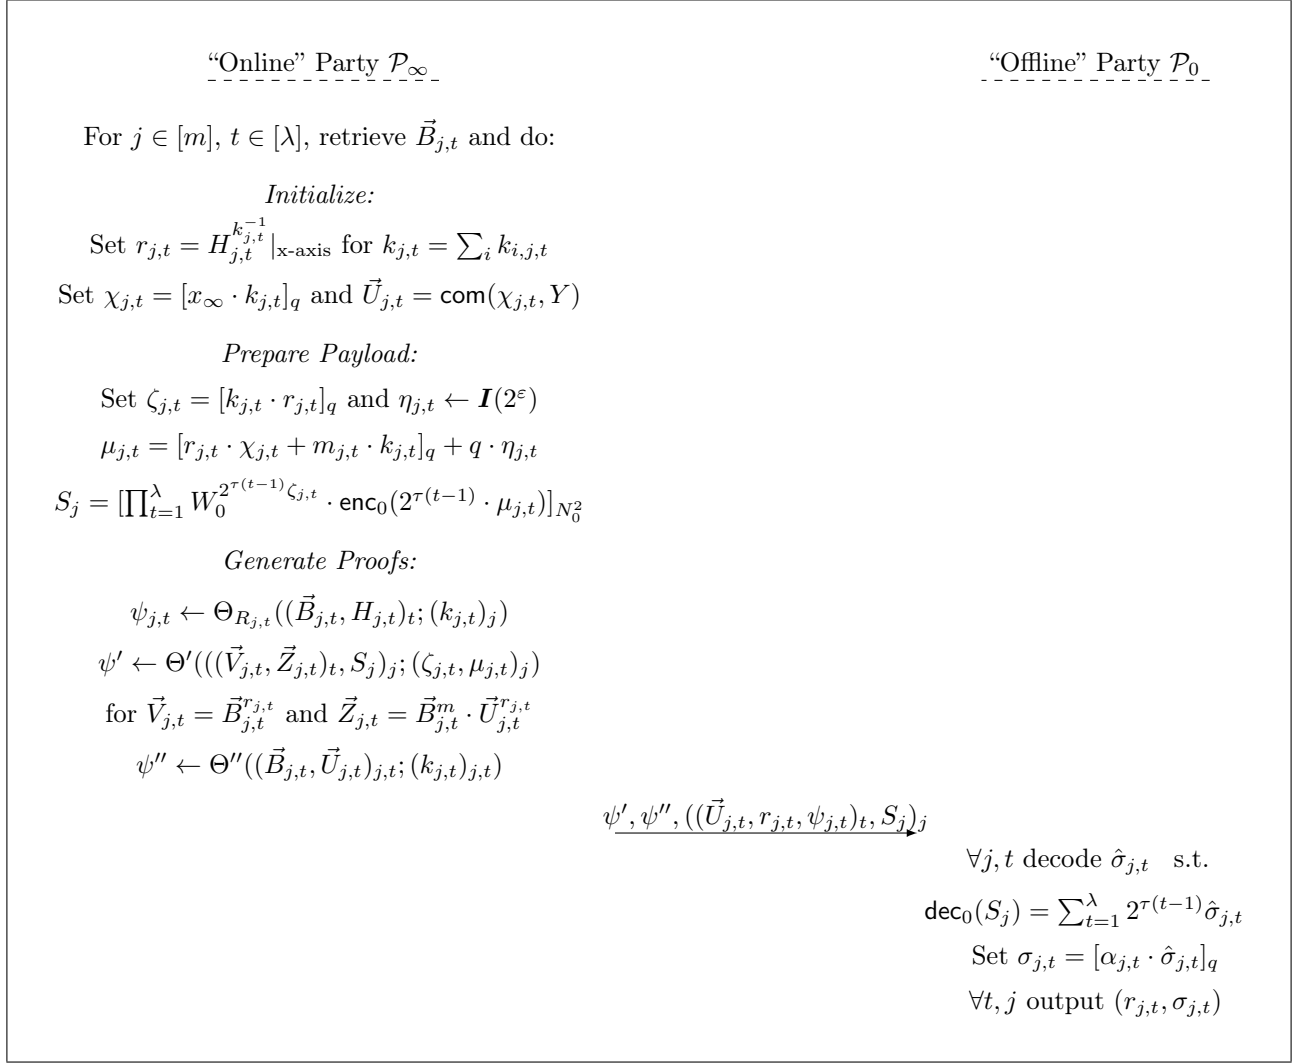 “Online” Party $\mathcal{P}_\infty$
“Offline” Party $\mathcal{P}_0$
For $j \in [m]$, $t \in [\lambda]$, retrieve $\vec{B}_{j,t}$ and do:
Initialize:
Set $r_{j,t} = H_{j,t}^{k_{j,t}^{-1}}|_{\text{x-axis}}$ for $k_{j,t} = \sum_i k_{i,j,t}$
Set $\chi_{j,t} = [x_\infty \cdot k_{j,t}]_q$ and $\vec{U}_{j,t} = \mathsf{com}(\chi_{j,t}, Y)$
Prepare Payload:
Set $\zeta_{j,t} = [k_{j,t} \cdot r_{j,t}]_q$ and $\eta_{j,t} \leftarrow \boldsymbol{I}(2^\varepsilon)$
$\mu_{j,t} = [r_{j,t} \cdot \chi_{j,t} + m_{j,t} \cdot k_{j,t}]_q + q \cdot \eta_{j,t}$
$S_j = [\prod_{t=1}^{\lambda} W_0^{2^{\tau(t-1)} \zeta_{j,t}} \cdot \mathsf{enc}_0(2^{\tau(t-1)} \cdot \mu_{j,t})]_{N_0^2}$
Generate Proofs:
$\psi_{j,t} \leftarrow \Theta_{R_{j,t}}((\vec{B}_{j,t}, H_{j,t})_t; (k_{j,t})_j)$
$\psi' \leftarrow \Theta'(((\vec{V}_{j,t}, \vec{Z}_{j,t})_t, S_j)_j; (\zeta_{j,t}, \mu_{j,t})_j)$
for $\vec{V}_{j,t} = \vec{B}_{j,t}^{r_{j,t}}$ and $\vec{Z}_{j,t} = \vec{B}_{j,t}^{m} \cdot \vec{U}_{j,t}^{r_{j,t}}$
$\psi'' \leftarrow \Theta''((\vec{B}_{j,t}, \vec{U}_{j,t})_{j,t}; (k_{j,t})_{j,t})$
$\psi', \psi'', ((\vec{U}_{j,t}, r_{j,t}, \psi_{j,t})_t, S_j)_j$
$\forall j, t$ decode $\hat{\sigma}_{j,t}$ s.t.
$\mathsf{dec}_0(S_j) = \sum_{t=1}^{\lambda} 2^{\tau(t-1)} \hat{\sigma}_{j,t}$
Set $\sigma_{j,t} = [\alpha_{j,t} \cdot \hat{\sigma}_{j,t}]_q$
$\forall t, j$ output $(r_{j,t}, \sigma_{j,t})$